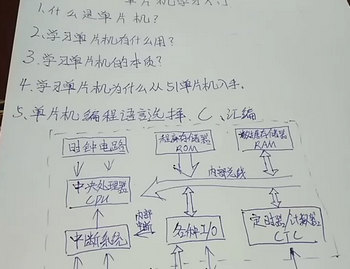 单片机学习入门
1.什么是单片机?
2.学习单片机有什么用?
3.学习单片机的本质?
4.学习单片机为什么从51单片机入手.
5.单片机编程语言选择. C、汇编
时钟电路
程序存储器
ROM
数据存储器
RAM
内部总线
中央处理器
CPU
中断系统
内部
中断
各种I/O
定时器/计数器
CTC